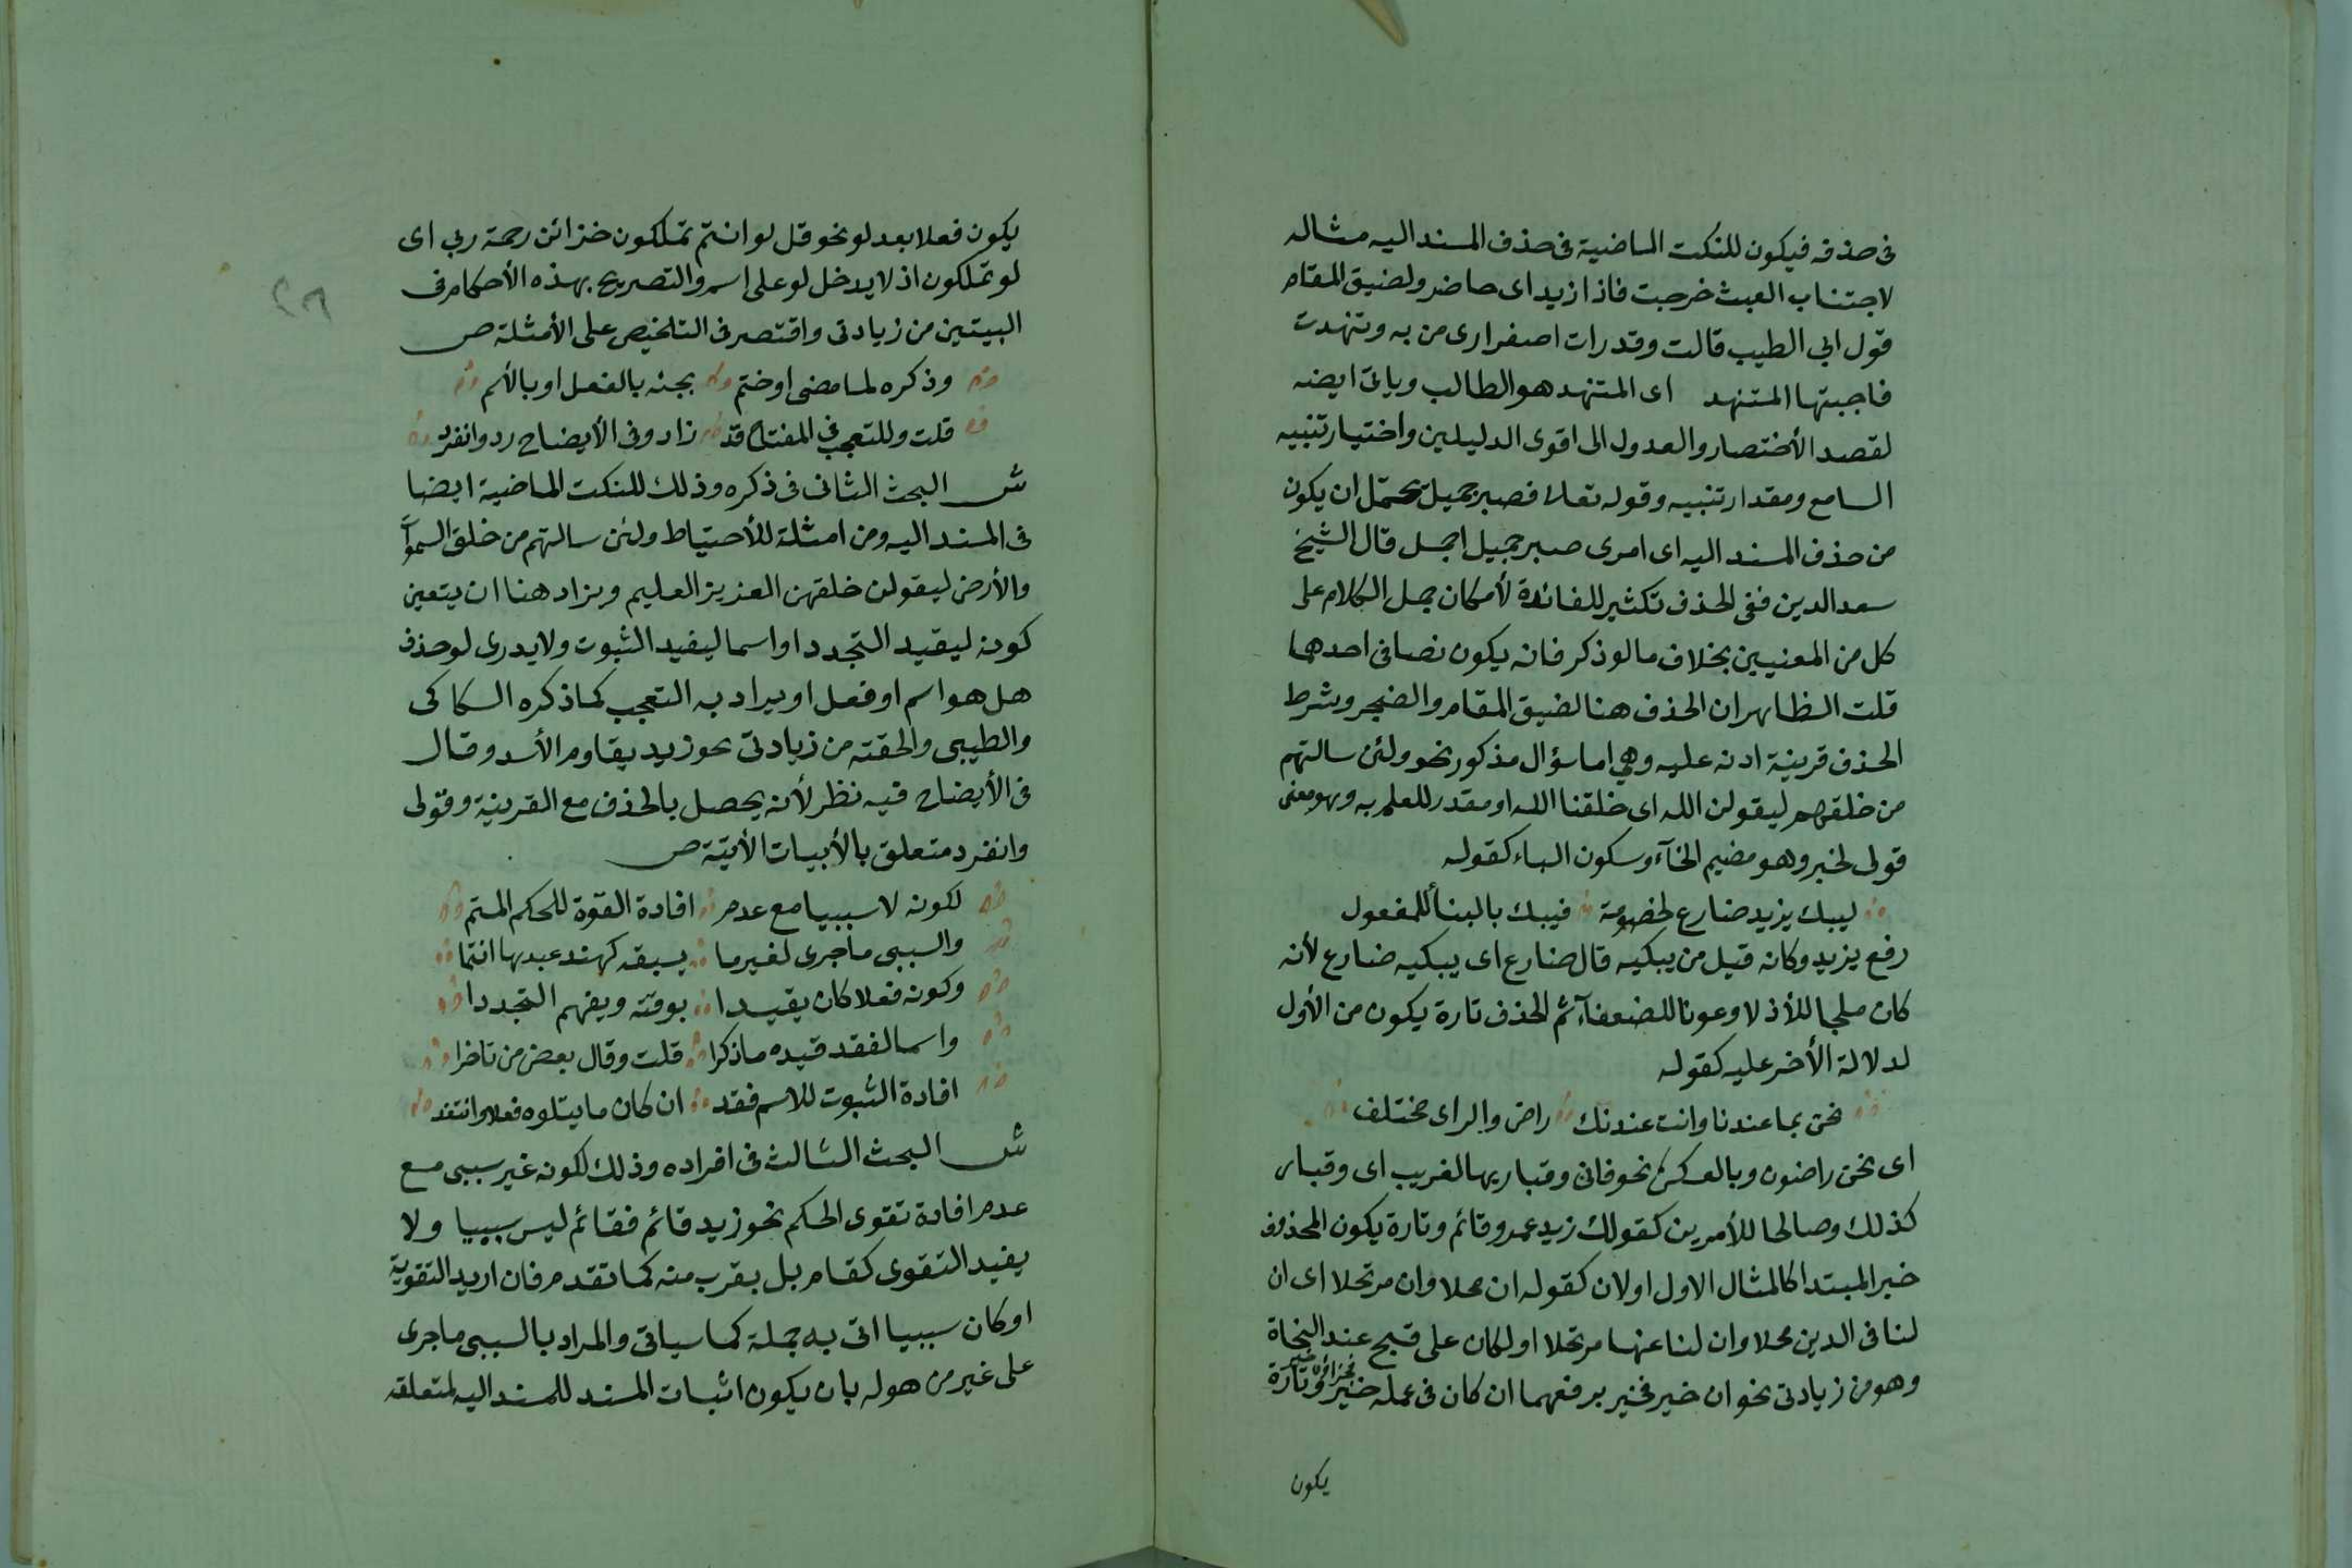 فى حذفه فيكون للنكت الماضية فى حذف المسند اليه مثاله
لاجتناب العبث خرجت فاذا زيد اى حاضر ولضيق المقام
قول ابي الطيب قالت وقد رات اصفرارى من به وتنهدت
فاجبتها المتنهد اى المتنهد هو الطالب وياتى ايضه
لقصد الأختصار والعدول الى اقوى الدليلين واختيار تنبيه
السامع ومقدار تنبيه وقوله تعالى فصبر جميل يحتمل ان يكون
من حذف المسند اليه اى امرى صبر جميل اجمل قال الشيخ
سعد الدين ففى الحذف تكثير للفائدة لأمكان حمل الكلام على
كل من المعنيين بخلاف ما لو ذكر فانه يكون نصا فى احدهما
قلت الظاهر ان الحذف هنا لضيق المقام والضجر وشرط
الحذف قرينة ادنه عليه وهي اما سؤال مذكور نحو ولئن سالتهم
من خلقهم ليقولن الله اى خلقنا الله او مقدر للعلم به وهو معنى
قولى لخبر وهو مضيم الخآء وسكون الباء كقوله
ليبك يزيد ضارع لخصومة فيبك بالبنأ للمفعول
رفع يزيد وكانه قيل من يبكيه قال ضارع اى يبكيه ضارع لأنه
كان ملجا للأذلا وعونا للضعفآء ثم الحذف تارة يكون من الأول
لدلالة الأخر عليه كقوله
نحن بما عندنا وانت عندنك راض والراى مختلف
اى نحن راضون وبالعكس نحو فانى وقيار بها لغريب اى وقيار
كذلك وصالحا للأمرين كقولك زيد عمرو قائم وتارة يكون المحذوف
خبر المبتدا كالمثال الاول او لان كقوله ان محلا وان مرتحلا اى ان
لنا فى الدين محلا وان لنا عنها مرتحلا او لكان على قبح عند النحاة
وهو من زيادتى نحو ان خير فخير برفعهما ان كان فى عمله خير وتارة
يكون
يكون فعلا بعد لو نحو قل لو انتم تملكون خزائن رحمة ربي اى
لو تملكون اذ لا يدخل لو على اسم والتصريح بهذه الأحكام فى
البيتين من زيادتى واقتصر فى التلخيص على الأمثلة ص
وذكره لما مضى او ختم بجنه بالفعل او بالأسم
قلت وللتعجب فى المفتاح قد زاد وفى الأيضاح رد وانفرد
ش البحث الثانى فى ذكره وذلك للنكت الماضية ايضا
فى المسند اليه ومن امثلة للأحتياط ولئن سالتهم من خلق السموآ
والأرض ليقولن خلقهن العزيز العليم ويزاد هنا ان يتعين
كونه ليقيد التجدد او اسما ليفيد الثبوت ولا يدرى لو حذف
هل هو اسم او فعل او يراد به التعجب كما ذكره السكاكى
والطيبى والحقته من زيادتى نحو زيد يقاوم الأسد وقال
فى الأيضاح فيه نظر لأنه يحصل بالحذف مع القرينة وقولى
وانفرد متعلق بالأبيات الأتيّة ص
لكونه لا سببيا مع عدم افادة القوة للحكم المتم
والسببى ما جرى لغير ما يسبقه كهند عبدها انتما
وكونه فعلا كان يقيدا بوقته ويفهم التجددا
واسما لفقد قيده ما ذكرا قلت وقال بعض من تاخرا
افادة الثبوت للاسم فقد ان كان ما يتلوه فعلا وانتقد
ش البحث الثالث فى افراده وذلك لكونه غير سببى مع
عدم افادة تقوى الحكم نحو زيد قائم فقائم ليس سببيا ولا
يفيد التقوى كقام بل بقرب منه كما تقدم فان اريد التقوية
او كان سببيا اتى به جملة كما سياتى والمراد بالسببى ما جرى
على غير من هو له بان يكون اثبات المسند للمسند اليه لمتعلقه